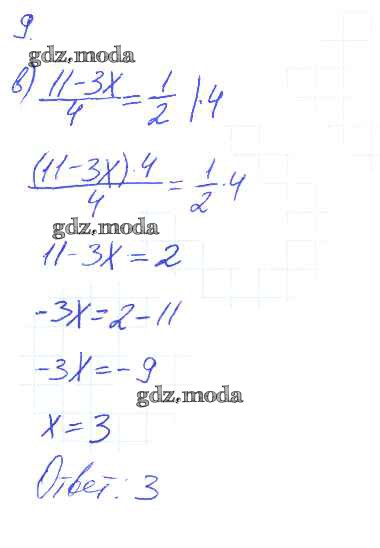 9.
gdz.moda
в) (11-3x)/4 = 1/2 |·4
((11-3x)·4)/4 = 1/2·4
gdz.moda
11-3x=2
-3x=2-11
-3x=-9
gdz.moda
x=3
Ответ: 3